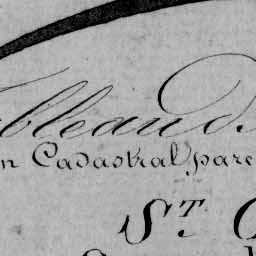 ableau d
n Cadastral parc
ST. C